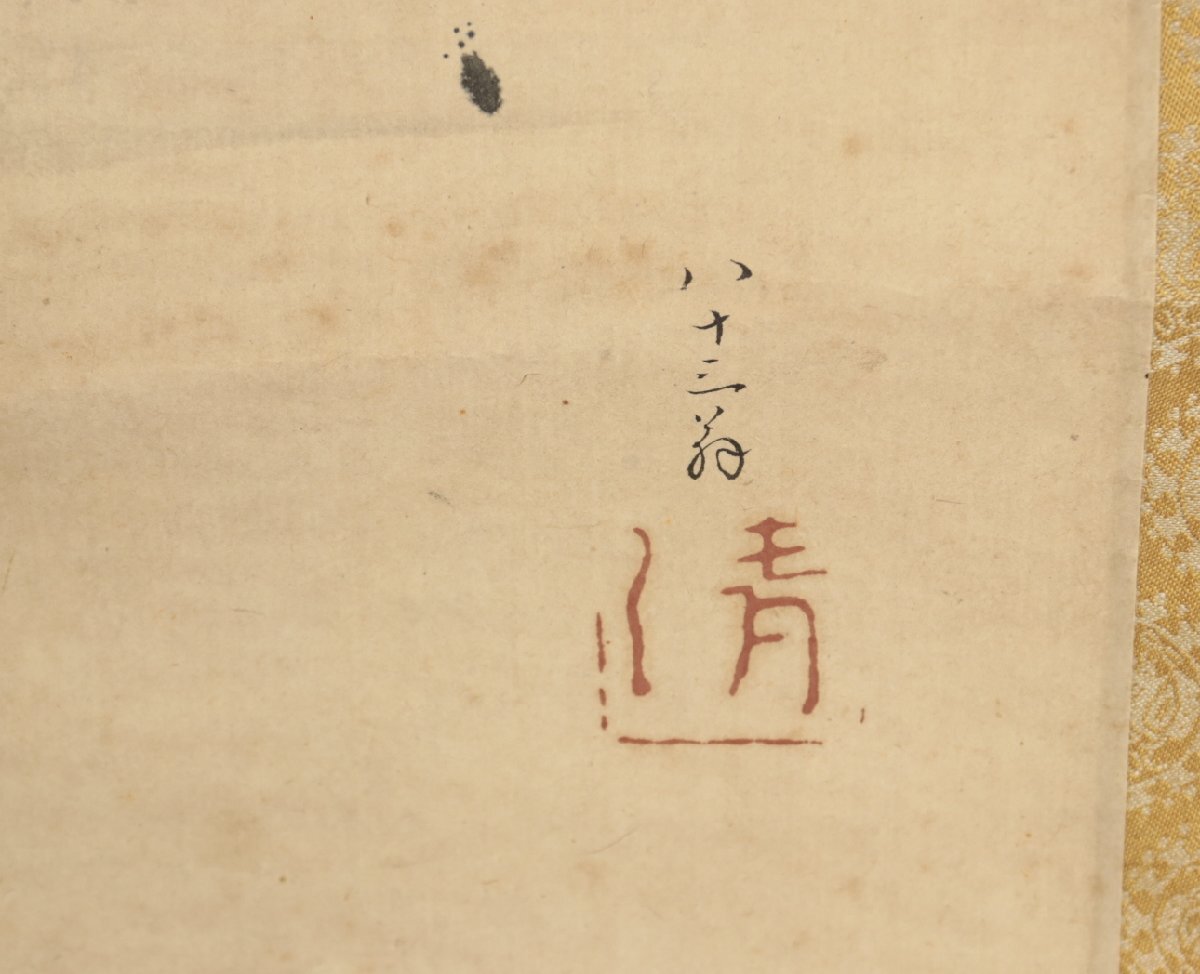 八十三翁
清